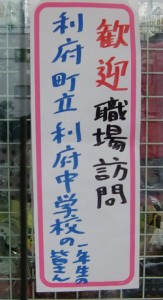 歓迎 職場訪問
利府町立利府中学校の
一年生の
皆さん